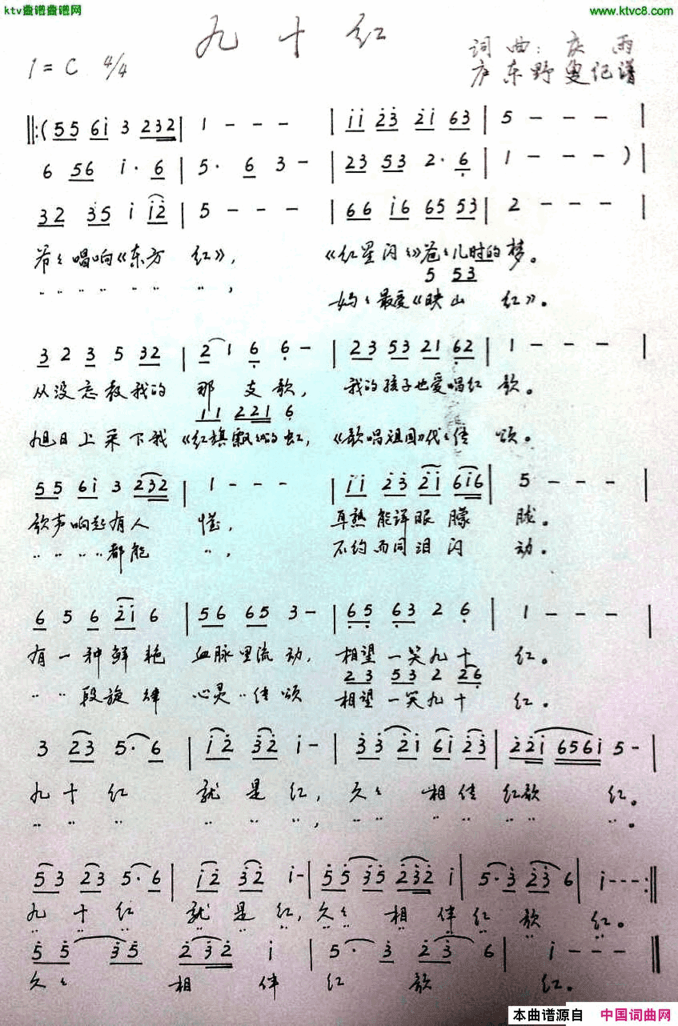 ktv盘谱盘谱网 www.ktvc8.com
九十红
1=C 4/4 词曲：庆雨
东野叟记谱
‖:(55 6i 3 232 | 1 - - - | ii 23 2i 63 | 5 - - - |
6 56 i· 6 | 5· 6 3 - | 23 53 2· 6 | 1 - - - ) |
32 35 i i2 | 5 - - - | 66 i6 65 53 | 2 - - - |
爷爷唱响《东方红》， 《红星闪闪》爸爸儿时的梦。
5 53
〃〃〃〃〃〃， 妈妈最爱《映山红》。
3 2 3 5 32 | 2 1 6 6 - | 23 53 21 62 | 1 - - - |
从没忘教我的那支歌， 我的孩子也爱唱红歌。
11 221 6
旭日上采下我《红旗飘飘的虹， 《歌唱祖国》代代传颂。
55 6i 3 232 | 1 - - - | ii 23 2i 6i6 | 5 - - - |
歌声响起有人懂， 耳熟能详眼朦胧。
〃〃〃〃都能〃， 不约而同泪闪动。
6 5 6 2i 6 | 56 65 3 - | 65 63 2 6 | 1 - - - |
有一种鲜艳血脉里流动，相望一笑九十红。
23 53 2 26
〃〃段旋律心灵〃传颂 相望一笑九十红。
3 23 5· 6 | i2 32 i - | 33 22i 6i 23 | 22i 656i 5 - |
九十红就是红，久久相传红歌红。
〃〃〃〃〃〃，〃〃〃〃〃〃〃。
53 23 5· 6 | i2 32 i - | 55 35 232 i | 5· 3 23 6 | i - - - :‖
九十红就是红，久久相伴红歌红。
55 35 232 i | 5· 3 23 6 | i - - - ‖
久久相伴红歌红。
本曲谱源自 中国词曲网